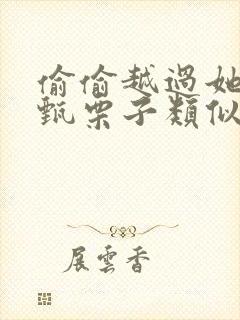 偷偷越過她
甄栗子類似
展雲香